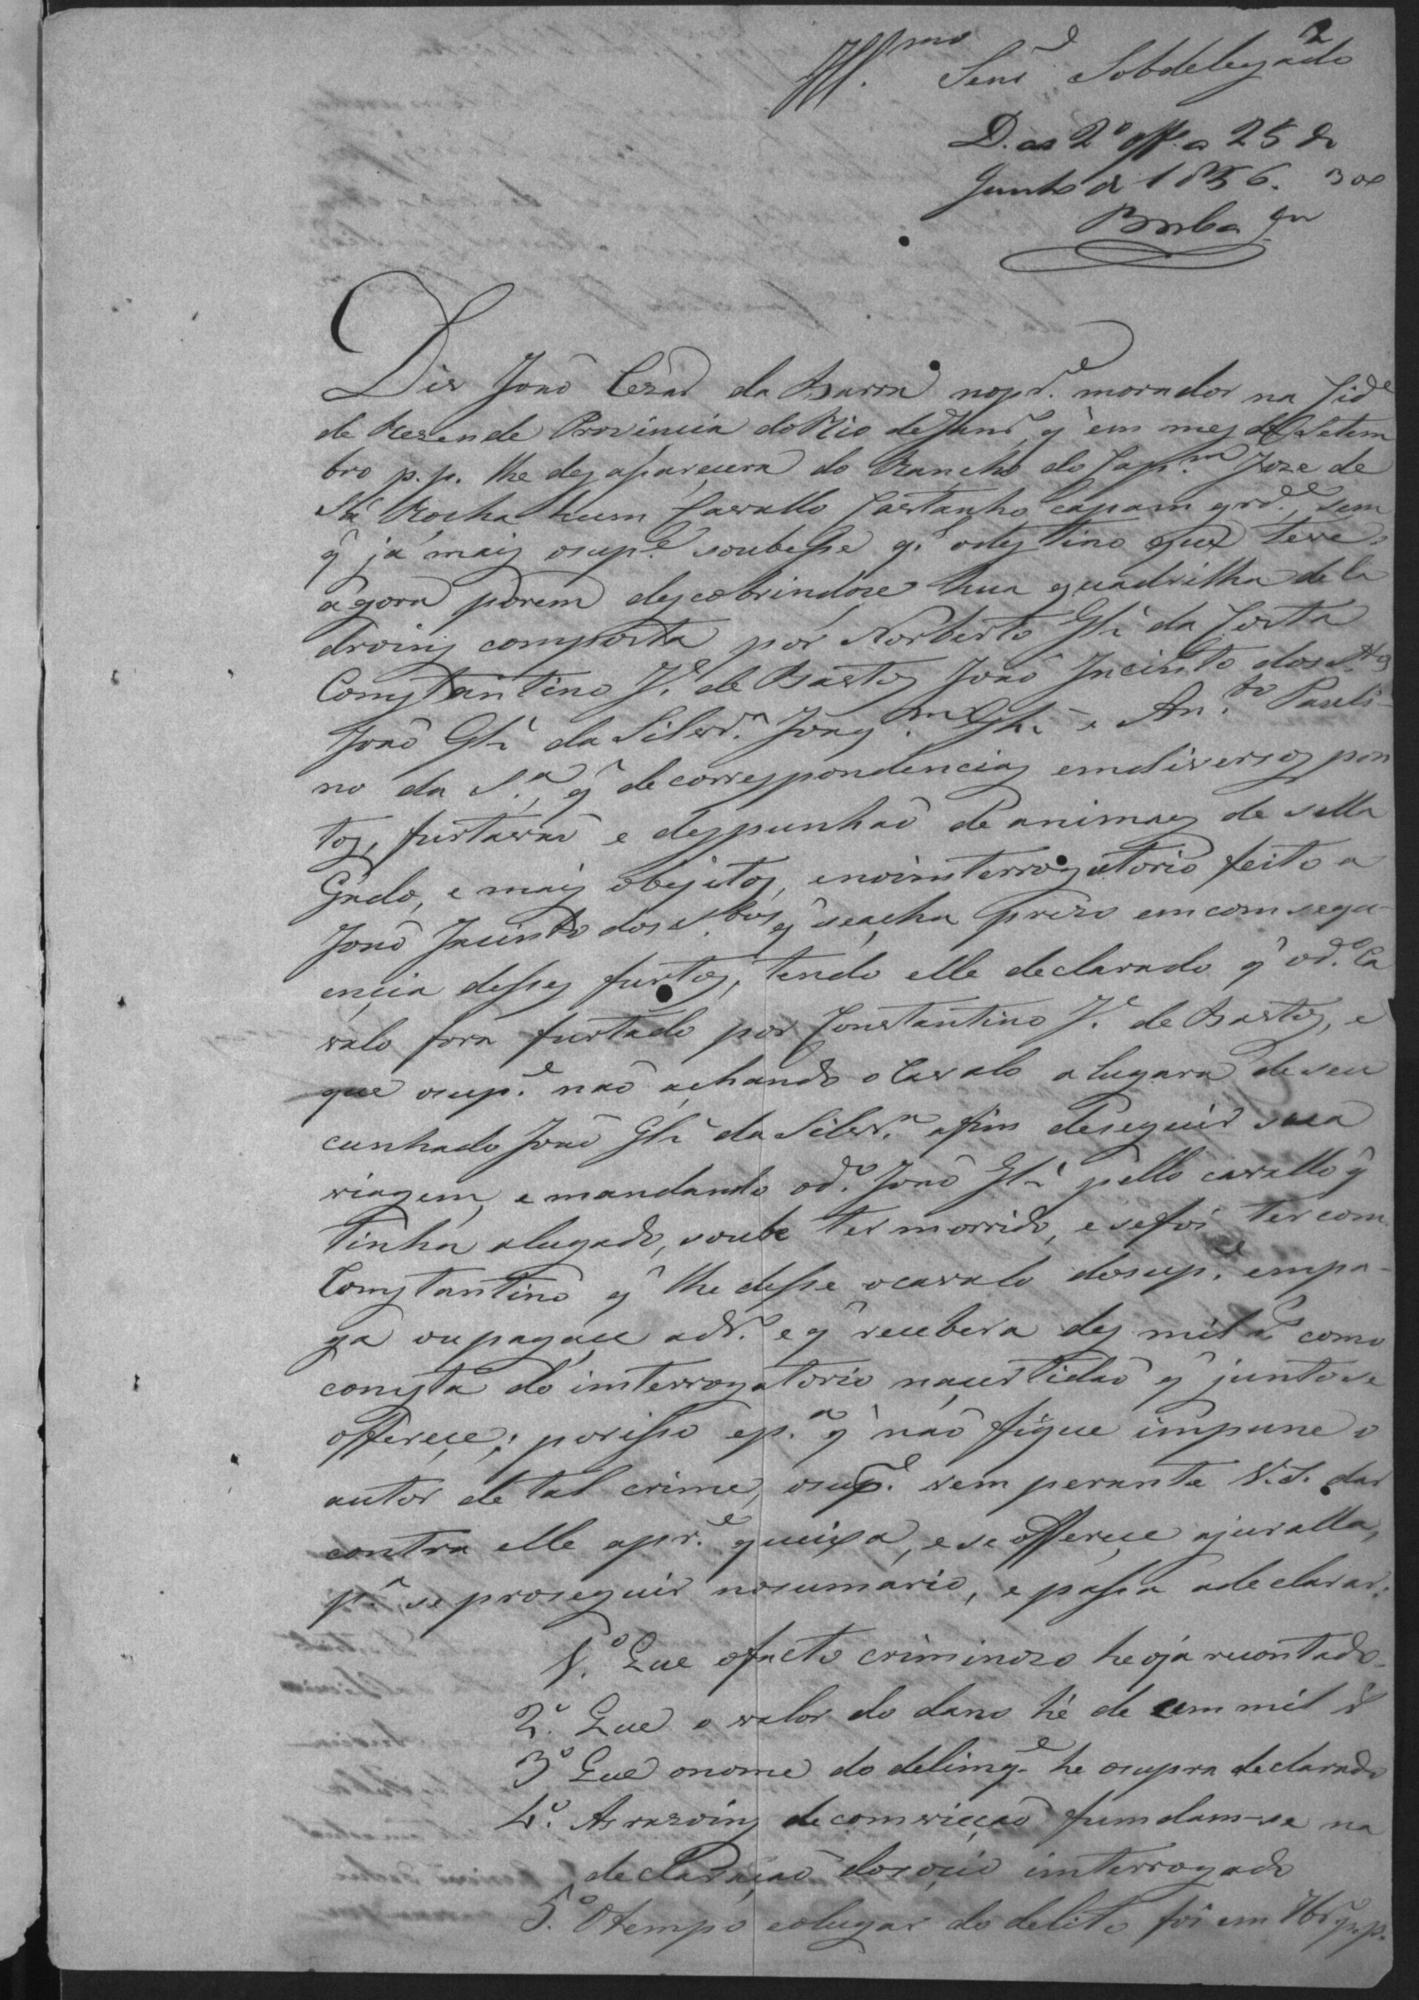 2
Illmo Senr Sobdelegado
D. ao 2º off. a 25 de
Junho de 1856.
Diz João Cezar da Barra nopr.e morador na Cid.e
de Rezende Provincia do Rio de Janr.o q̃ em mez de Setem
bro p.p. lhe dezaparecera do Rancho do Cap.m Joze de
Sá Rocha hum Cavallo Castanho capam grd.e, sem
q̃ já mais osup.e soubesse q.l odestino que teve,
agora porem descobrindose hua quadrilha de la
droins composta por Norberto Glz̃ da Costa
Constantino J.e de Bastos João Jacinto dos S.tos
João Glz̃ da Silvr.a Joaq.m Glz̃ e An.to Pauli-
no da S.a, q̃ de correspondencias emdiversos pon
tos, furtavão e despunhão de animaes de sella
Gado, e mais obejitos, enointerrogatorio feito a
João Jacinto dos S.tos q̃ seacha prezo emcomsequ-
encia desses furtos, tendo elle declarado q̃ od.o Ca
valo fora furtado por Constantino J.e de Bastos, e
que osup.e não achando o Cavalo alugara de seu
cunhado João Glz̃ da Silvr.a afim deseguir sua
viagem, e mandando od.o João Glz̃ pello cavallo q̃
tinha alugado, soube ter morrido, e sefoi ter com
Constantino q̃ lhe desse ocavalo dosup.e empa-
ga oupagace adr.o e q̃ recebera dez mil r.s como
consta do interrogatorio nacertidão q̃ juntose
offerece; porisso e p.a q̃ não fique impune o
autor de tal crime, osup.e vem perante V.S. dar
contra elle apr.e queixa, e se offerece ajuralla,
p.a se proseguir nosumario, e passa adeclarar.
1.º Que ofacto criminozo heojá recontado.
2.º Que o valor do dano hé de cem mil r.s
3.º Que onome do delinq.e he osupra declarado
4.º As razoins de comvicção fumdam-se na
declaração dosocio interrogado
5.º Otempo eolugar do delito foi em 7br.o p.p.